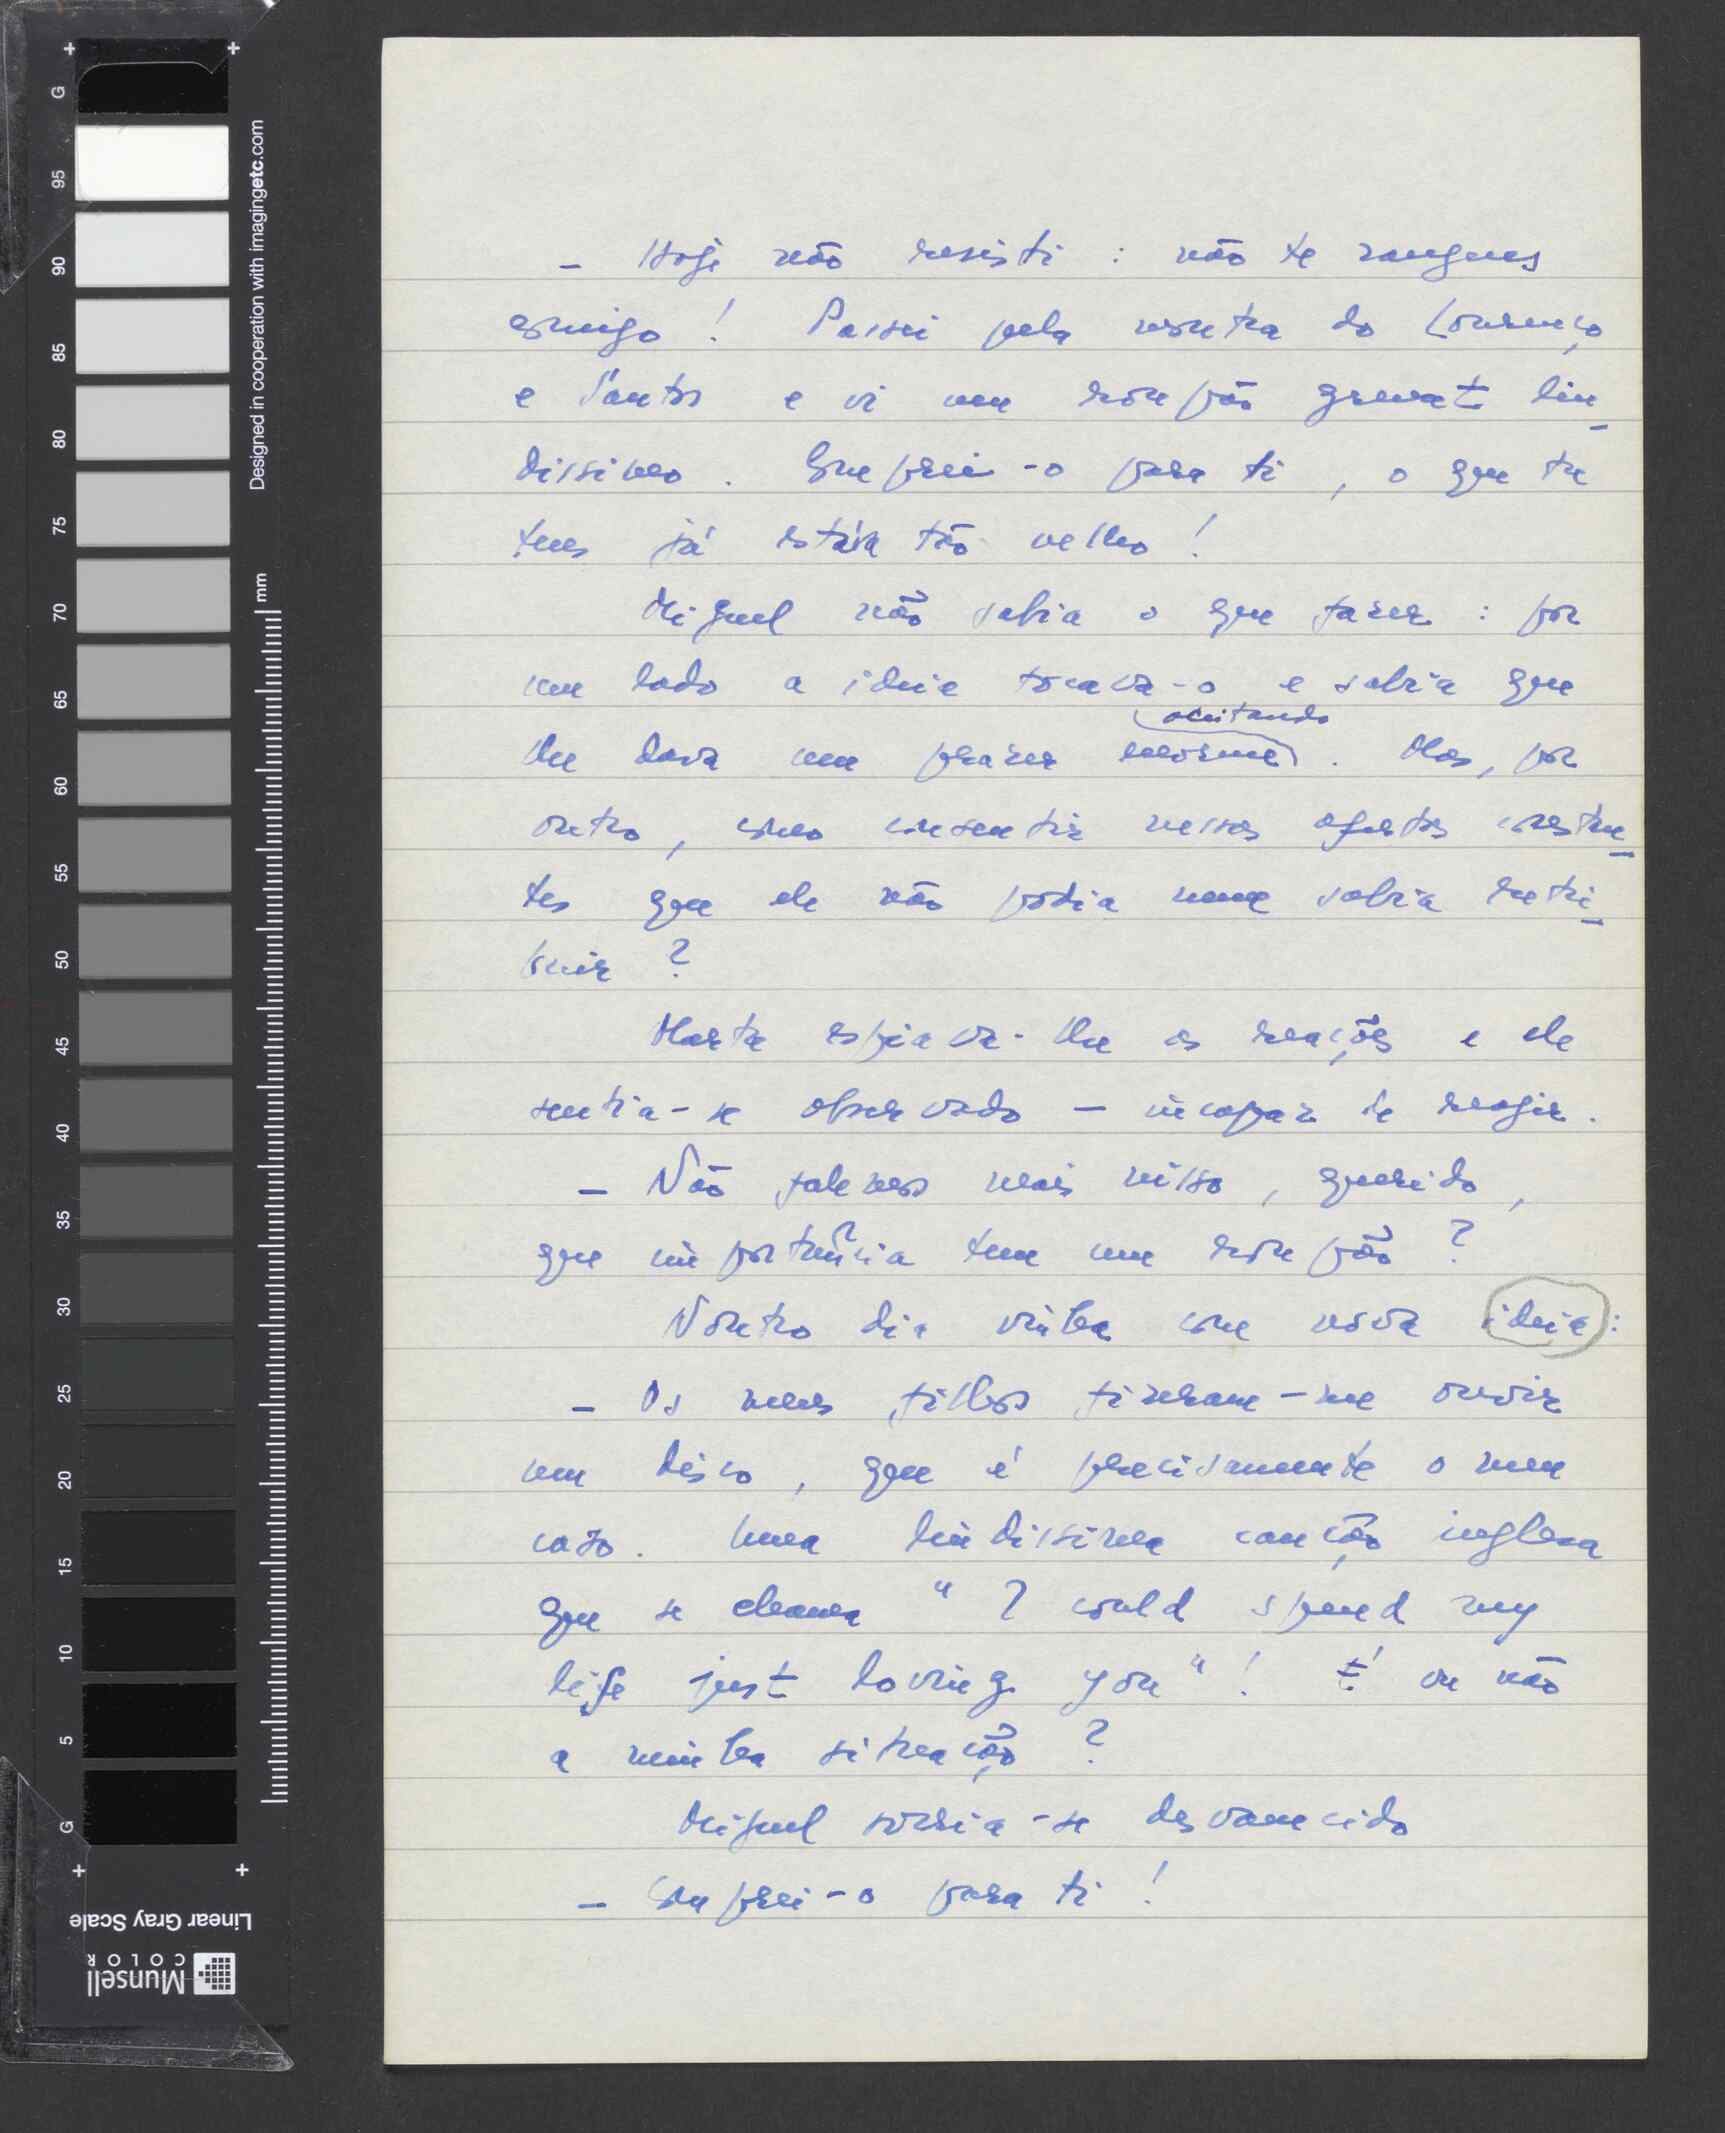 G
95
90
85
80
75
70
65
60
55
50
45
40
35
30
25
20
15
10
5
G
Designed in cooperation with imagingetc.com
mm
Linear Gray Scale
Munsell
COLOR
- Hoje não resisti : não te zangues
comigo ! Passei pela montra do Lourenço
e Santos e vi um roupão grenat lin-
díssimo . Comprei-o para ti , o que tu
tens já estava tão velho !
Miguel não sabia o que fazer : por
um lado a ideia tocava-o e sabia que
aceitando
lhe dava um prazer enorme . Mas, por
outro, como consentir nesses afectos constan-
tes que ele não podia nem sabia retri-
buir ?
Marta espiava-lhe as reações e ele
sentia-se observado - incapaz de reagir .
- Não falemos mais nisso , querido ,
que importância tem um roupão ?
Noutro dia vinha com nova ideia :
- Os meus filhos fizeram-me ouvir
um disco , que é precisamente o meu
caso . Uma lindíssima canção inglesa
que se chama " I could spend my
life just loving you " ! É ou não
a minha situação ?
Miguel sorria-se desvanecido
- Comprei-o para ti !